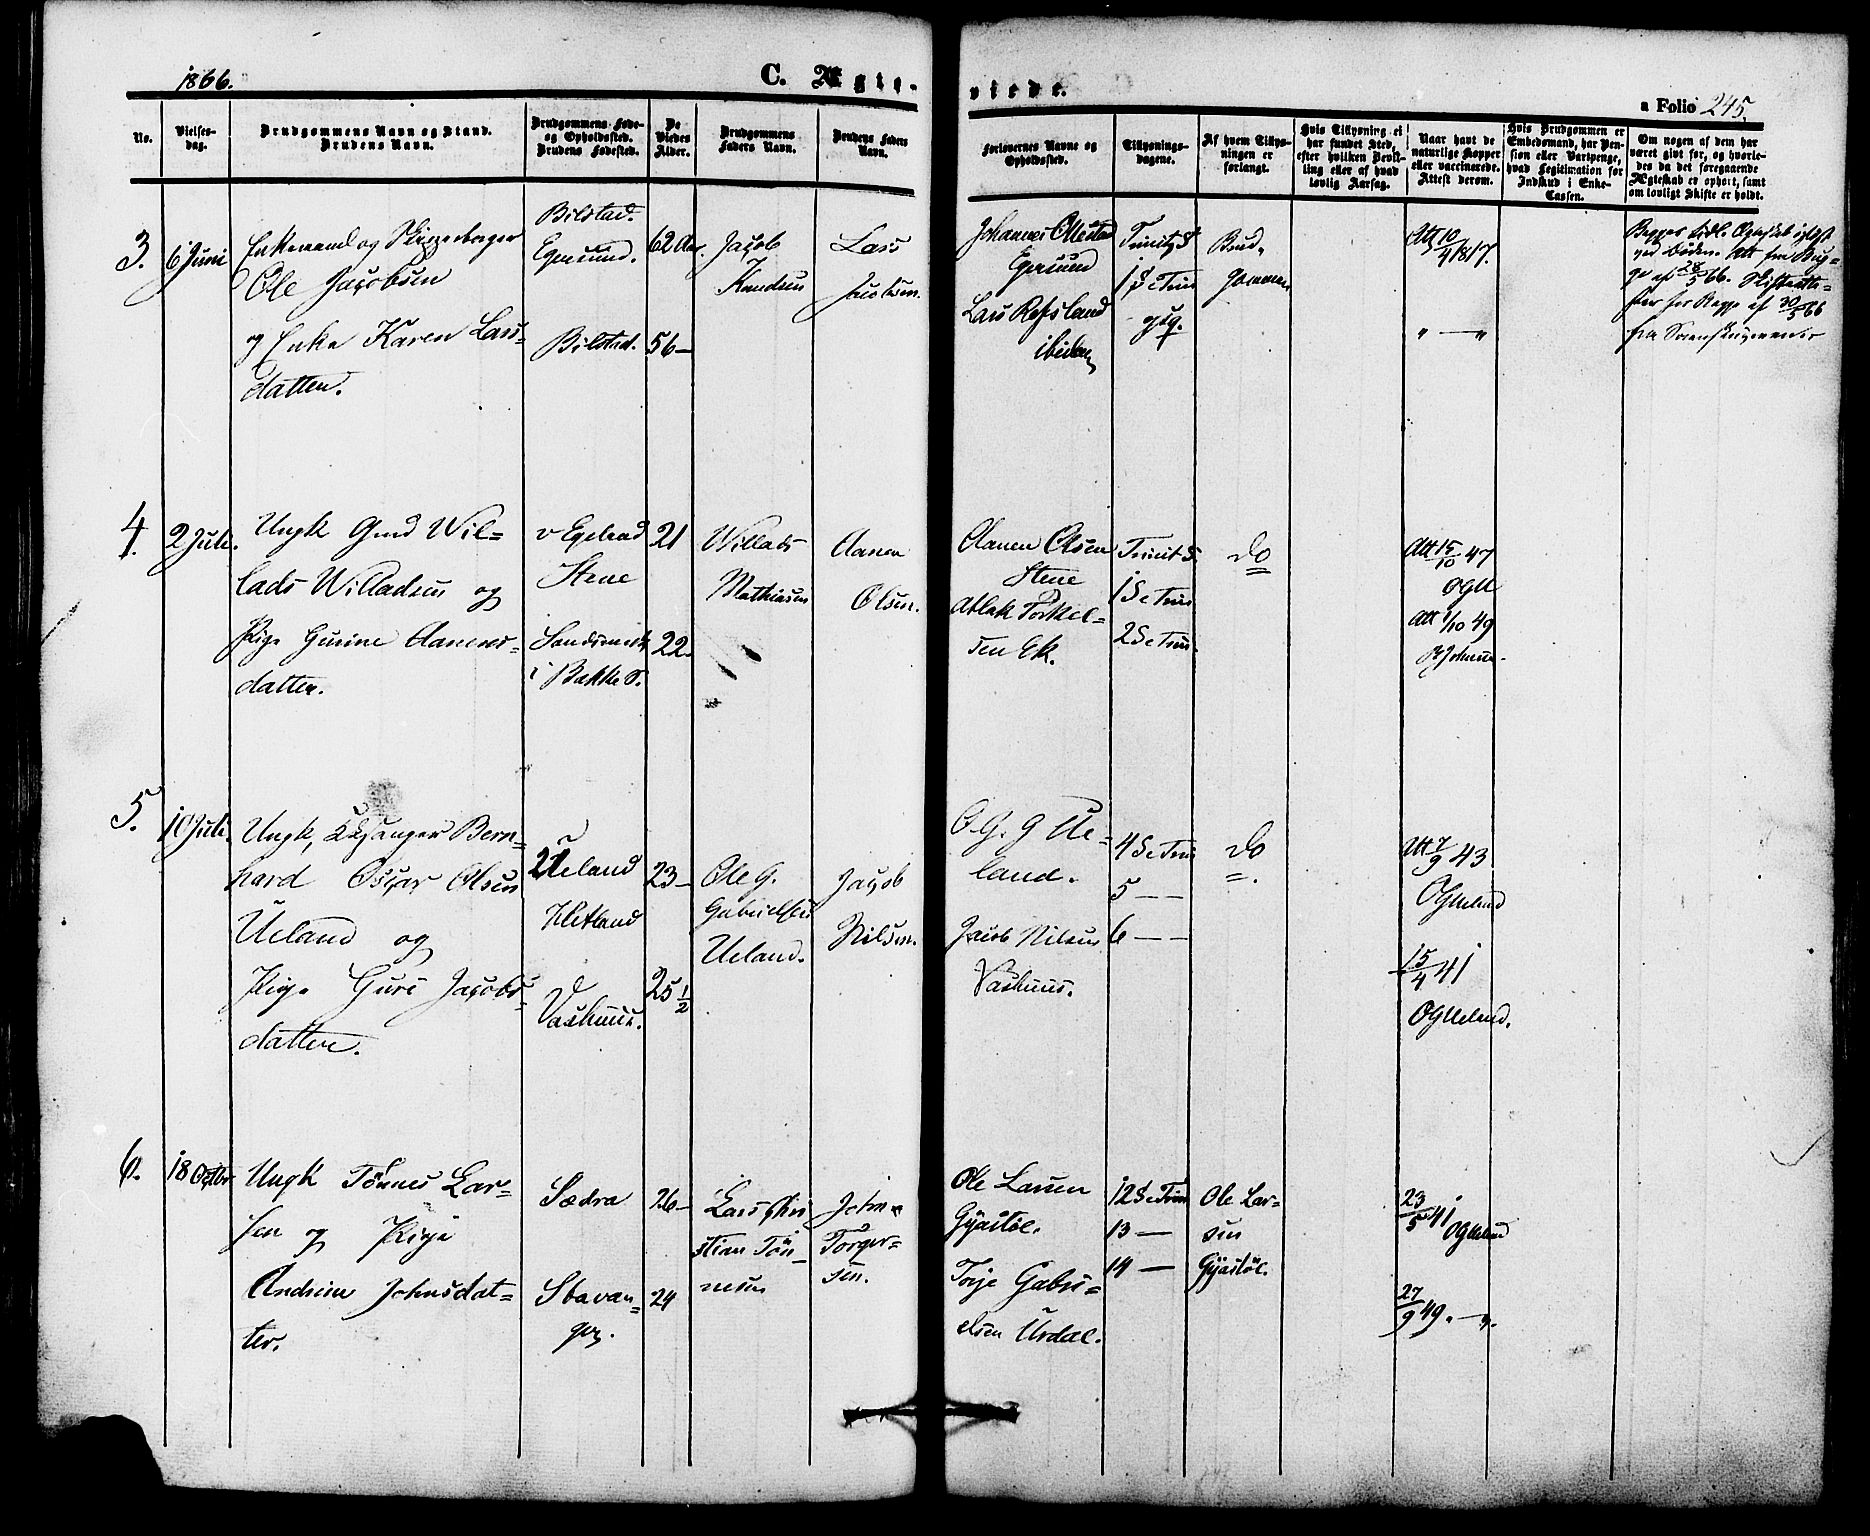 1866.
C. Ægte-
viede.
a Folio 245.
No.
Vielses-
dag.
Brudgommens Navn og Stand.
Brudens Navn.
Brudgommens Føde-
og Opholdssted.
Brudens Fødested.
De
Viedes
Alder.
Brudgommens
Faders Navn.
Brudens Faders
Navn.
Forlovernes Navne og
Opholdssted.
Tillysnings-
dagene.
Af hvem Tillys-
ningen er
forlangt.
Hvis Tillysning ei
har fundet Sted,
efter hvilken Bevil-
ling eller af hvad
lovlig Aarsag.
Naar havt de
naturlige Kopper
eller vaccinerede.
Attest derom.
Hvis Brudgommen er
Embedsmand, har Pen-
sion eller Vartpenge,
hvad Legitimation for
Indskud i Enke-
Cassen.
Om nogen af dem har
været gift før, og hvorle-
des da det foregaaende
Ægteskab er ophørt, samt
om lovligt Skifte er holdt.
3.
6 Juni
Enkemand og
Ole Jacobsen
og Enke Karen Lars-
datter.
Bilstad.
Egersund.
Bilstad.
62 Aar.
56 —
Jacob
Knudsen
Lars
Jacobsen.
Johannes Ollestad
Egersund
Lars Refsland
ibidem
Trinit. S
1 S e Trin
Brud-
gommen
Att 10/4 1817.
" — "
4.
2 Juli.
Ungk Gmd Wil-
lads Willadsen og
Pige Gurine Aanens-
datter.
v Egeland
Stene
Sandsmark
i Bakke S.
21
22.
Willads
Mathiasen
Aanen
Olsen.
Aanen Olsen
Stene
Atlak Torkel-
sen Ek.
Trinit S.
1 S e Trin
2 S e Trin.
do
Att 15/10 47
OGU
Att 1/10 49
5.
10 Juli.
Ungk, Kksanger Bern-
hard Oscar Olsen
Ueland og
Pige Guri Jacobs-
datter.
Ueland
Hetland
Vashuus.
23 —
25 1/2
Ole G.
Gabrielsen
Ueland.
Jacob
Nilsen.
O. G. Ue-
land.
Jacob Nilsen
Vashuus.
4 S e Trin
5 — —
6 — —
do
Att 7/9 43
OGUeland
15/4 41
OGUeland.
6.
18 Octbr
Ungk Tønnes Lar-
sen og Pige
Andrine Johnsdat-
ter.
Sædra
Stavan-
ger.
26 —
24
Lars Chri
stian Tøn
nesen
John
Torger-
sen.
Ole Larsen
Gyastøl.
Torje Gabri-
elsen Urdal.
12 S e Trin
13 —
14 —
Ole Lar-
sen
Gyastøl.
23/5 41
OGUeland
27/9 49. — "